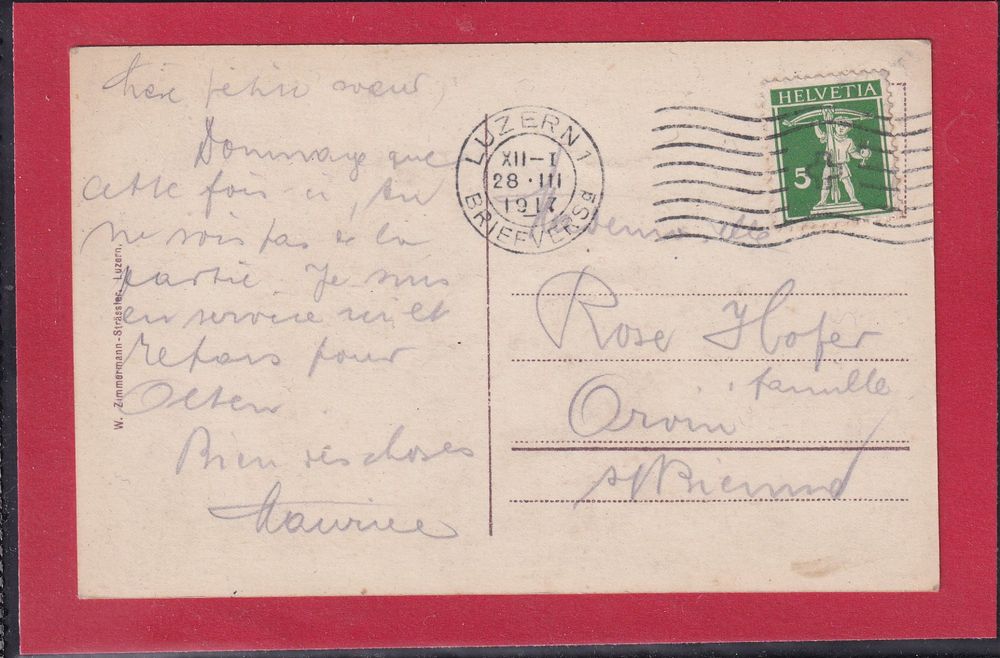 Chère petite soeur,
Dommage que
cette fois ci, tu
ne sois pas de la
partie. Je suis
en service ici et
repars pour
Olten.
Bien des choses
Maurice
W. Zimmermann-Strässler, Luzern.
LUZERN 1
XII-I
28·III
1917
BRIEFVERS
HELVETIA
5
Mademoiselle
Rose Hofer
famille
Orvin
s/Bienne